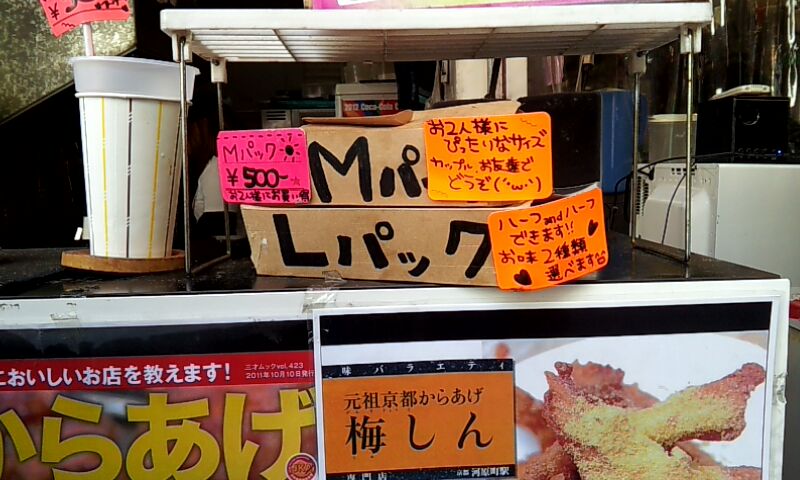 2012 Coca-Cola
Mパック
¥500~
お2人様にお買い得
Mパ
お2人様に
ぴったりなサイズ
カップル、お友達で
どうぞ(・ω・)
Lパック
ハーフandハーフ
できます!!
お味2種類
選べます
においしいお店を教えます!
三才ムックvol.423
2011年10月10日発行
からあげ
味バラエティ
元祖京都からあげ
梅しん
専門店
京都 河原町駅